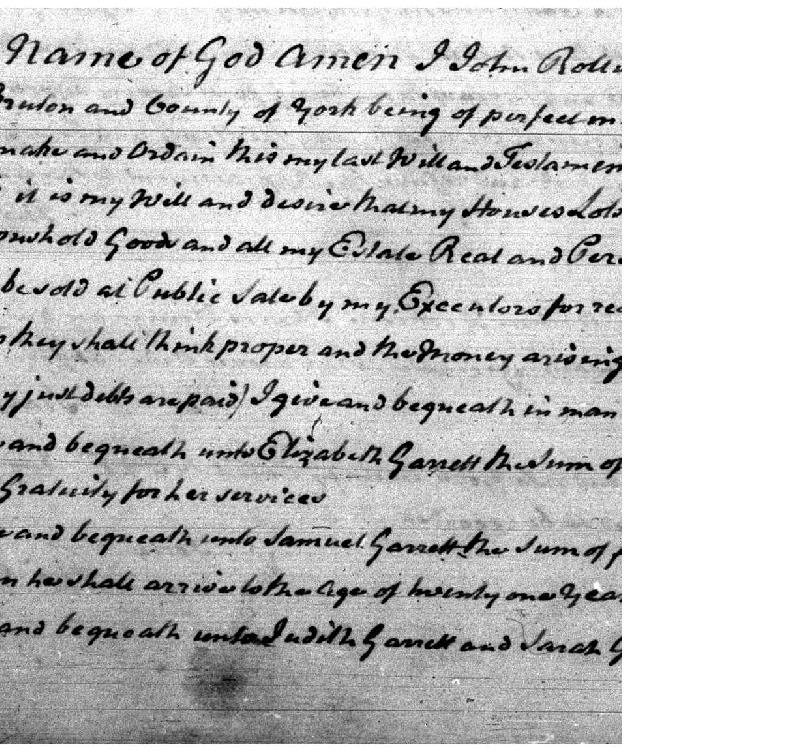 Name of God Amen I John
Bruton and County of York being of perfect
make and Ordain this my last Will and Testamen
it is my Will and desire that my Houses Lots
oushold Goods and all my Estate Real and Per
be sold at Public Sale by my Executors for
they shall think proper and the Money arising
y just debts are paid) I give and bequeath in man
and bequeath unto Elizabeth Garrett the Sum of
Gratuity for her services
and bequeath unto Samuel Garrett the Sum of
n he shall arrive to the Age of twenty one Year
and bequeath unto Judith Garrett and Sarah G